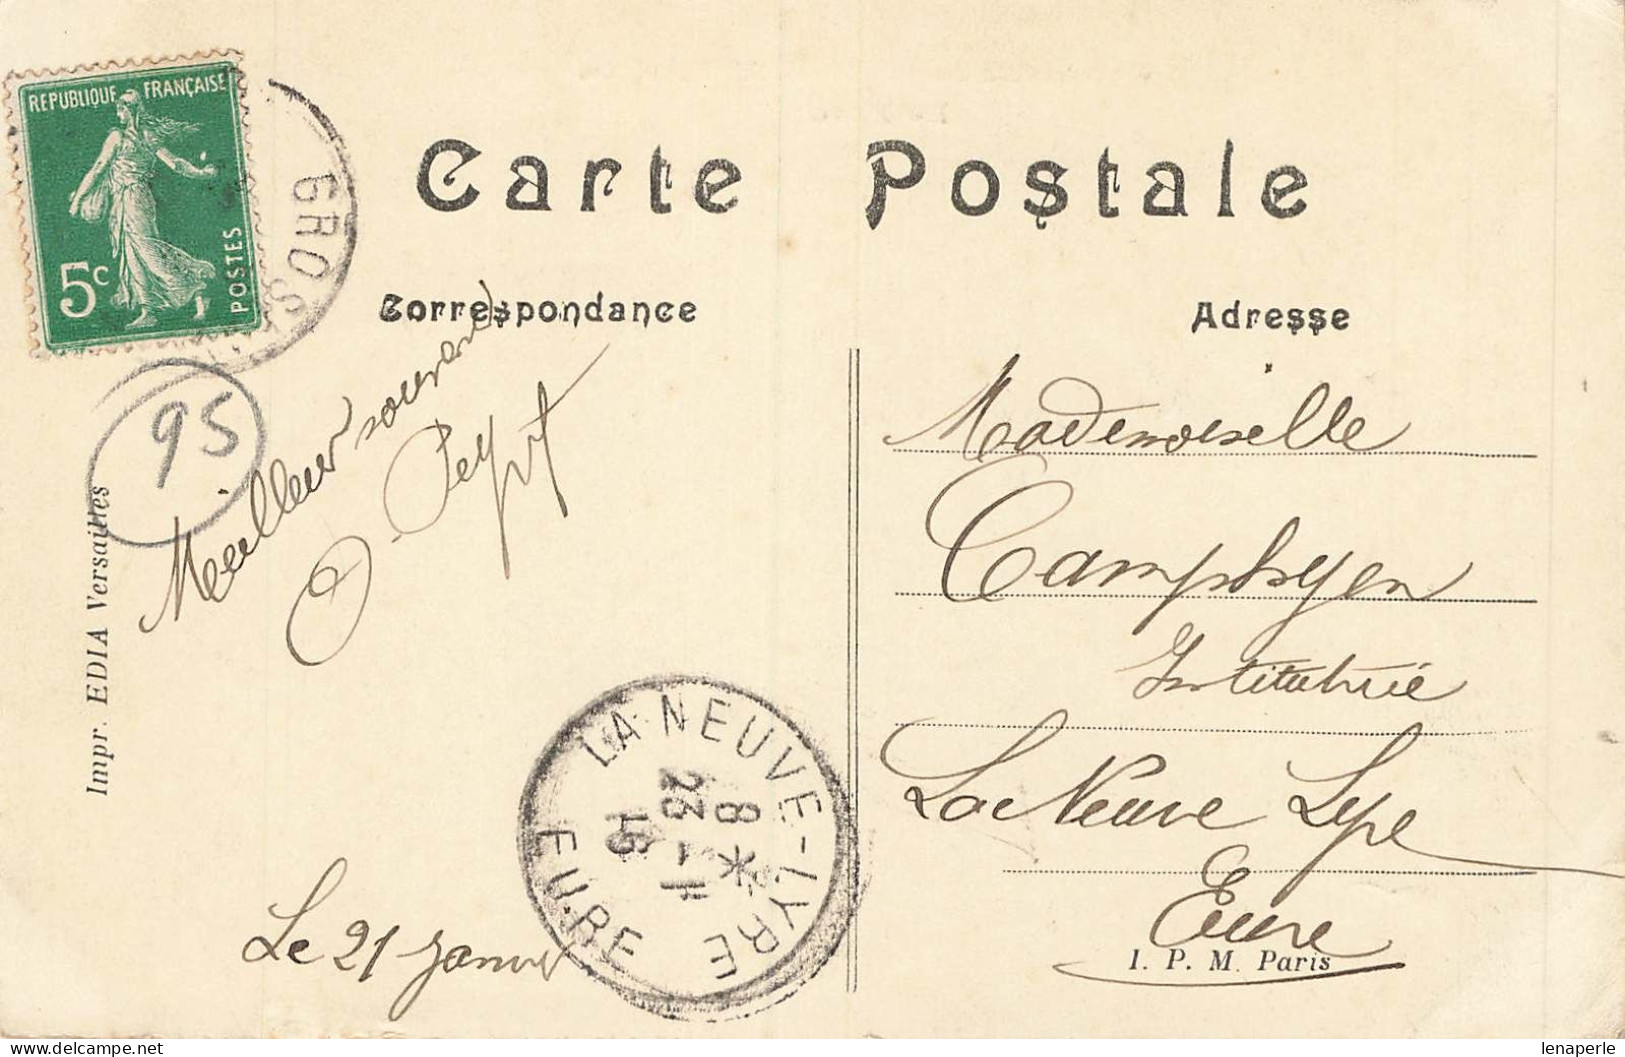 REPUBLIQUE FRANÇAISE
5c
POSTES
GROS
Carte Postale
Correspondance
Adresse
95
Meilleur souvenir
Impr. EDIA Versailles
Le 21 Janvier
LA NEUVE-LYRE
8 *
23 - 1
16
EURE
Mademoiselle
Camphyon
Institutrice
La Neuve Lyre
Eure
I. P. M. Paris
lenaperle